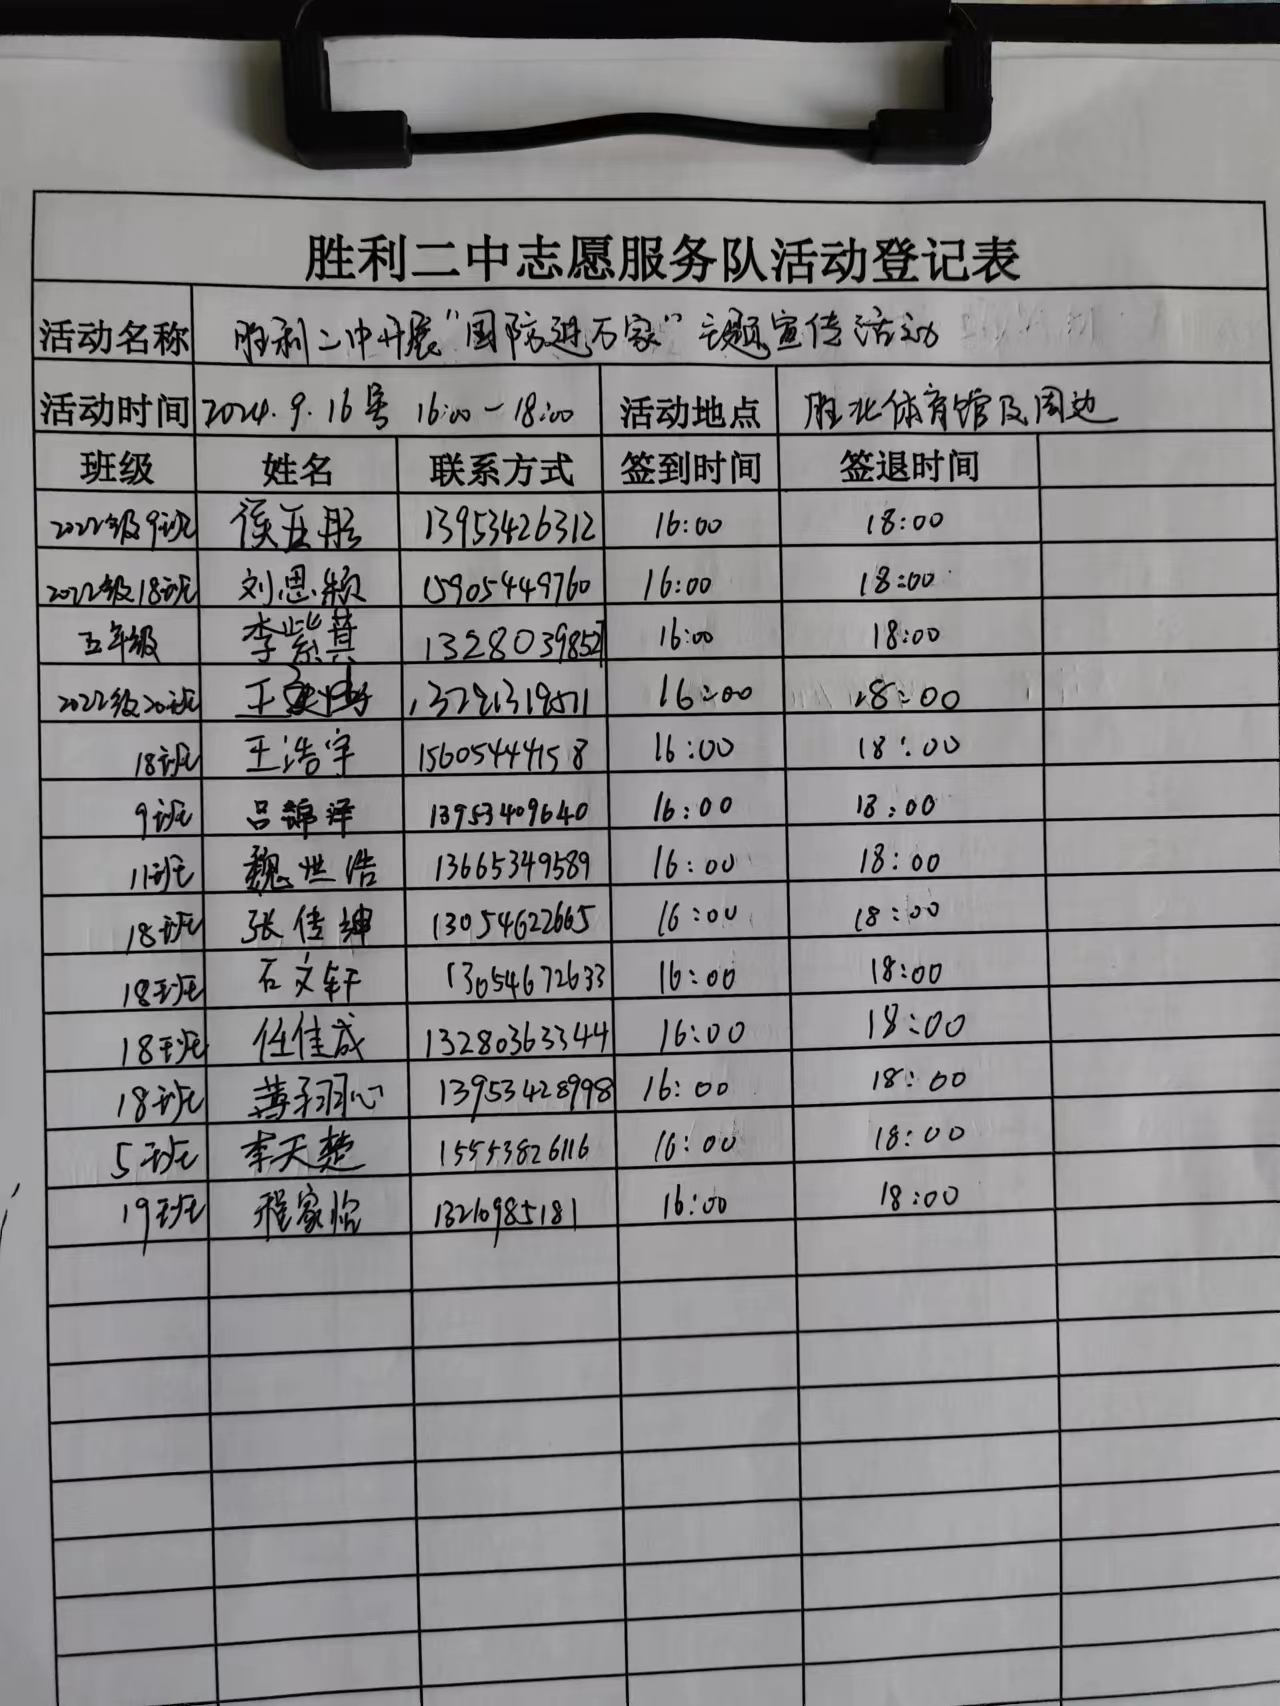 胜利二中志愿服务队活动登记表
活动名称 胜利二中开展“国防进万家”主题宣传活动
活动时间 2024.9.16号 16:00-18:00 活动地点 胜北体育馆及周边
班级 姓名 联系方式 签到时间 签退时间
2022级9班 侯亚彤 13953426312 16:00 18:00
2022级18班 刘思颖 15905449760 16:00 18:00
五年级 李紫萁 13280398527 16:00 18:00
2022级20班 王 16:00 18:00
18班 王浩宇 15605444158 16:00 18:00
9班 吕锦泽 13953409640 16:00 18:00
11班 魏世浩 13665349589 16:00 18:00
18班 张佳绅 13054622665 16:00 18:00
18班 石文轩 13054672633 16:00 18:00
18班 任佳成 13280363344 16:00 18:00
18班 薄羽心 13953428998 16:00 18:00
5班 李天楚 15553826116 16:00 18:00
19班 程家怡 16:00 18:00